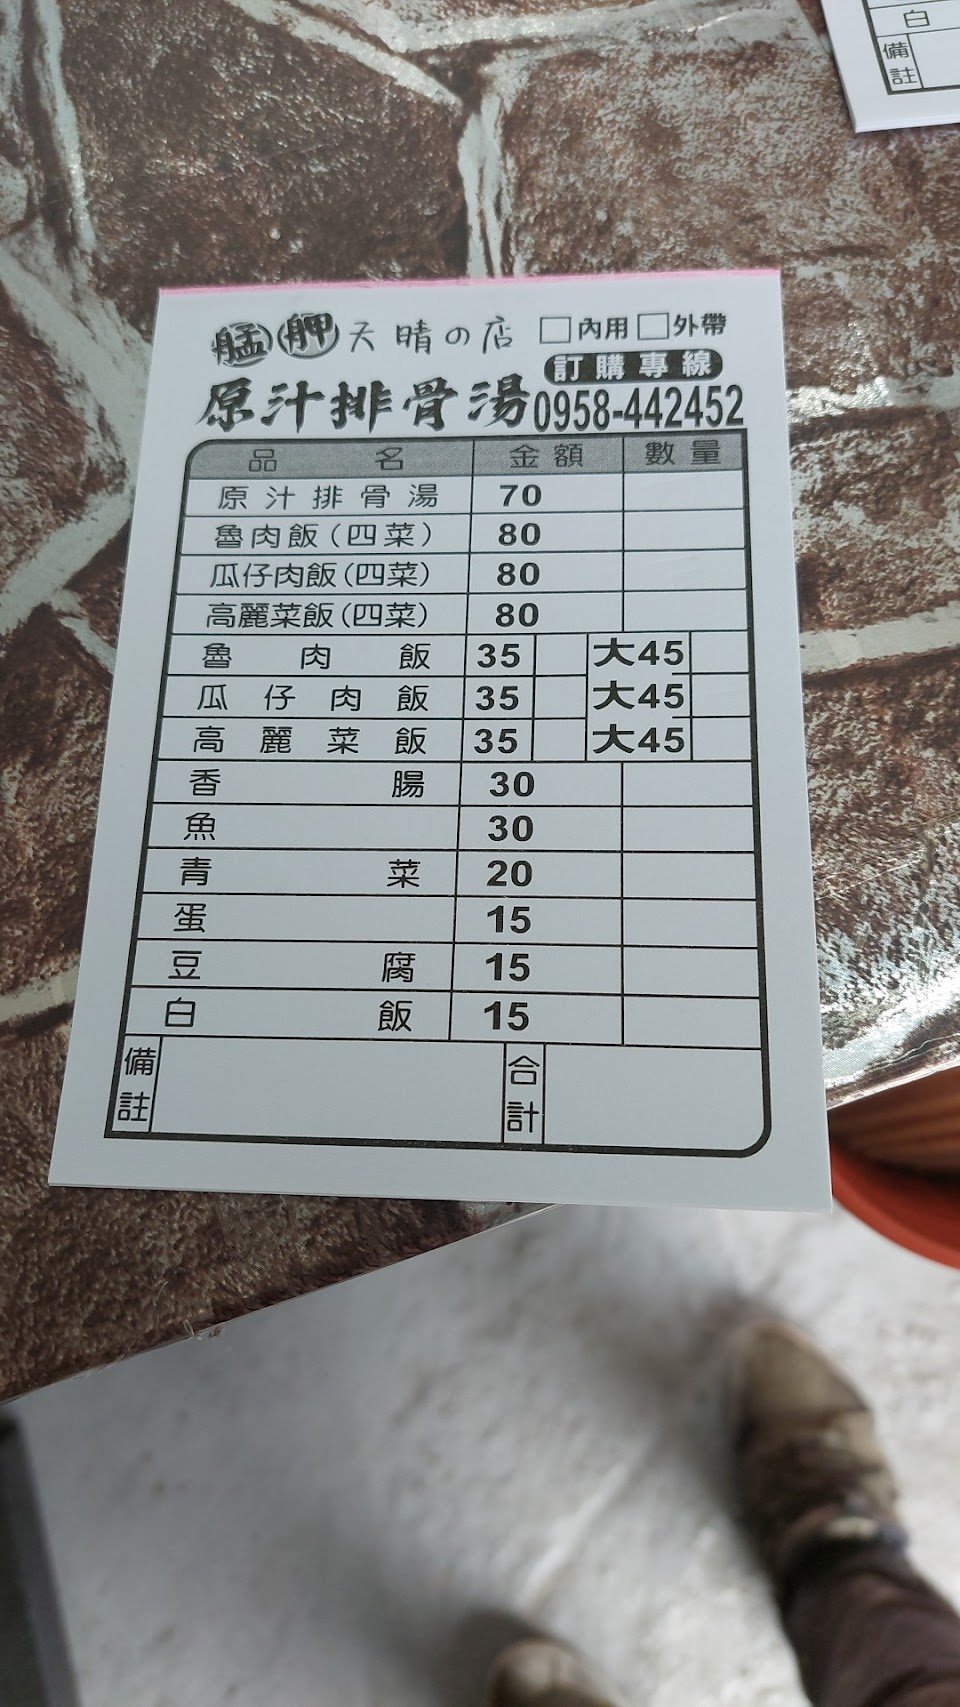 白
備
註
艋舺天晴の店 □內用□外帶
訂購專線
原汁排骨湯 0958-442452
品名 金額 數量
原汁排骨湯 70
魯肉飯(四菜) 80
瓜仔肉飯(四菜) 80
高麗菜飯(四菜) 80
魯肉飯 35 大45
瓜仔肉飯 35 大45
高麗菜飯 35 大45
香腸 30
魚 30
青菜 20
蛋 15
豆腐 15
白飯 15
備註 合計